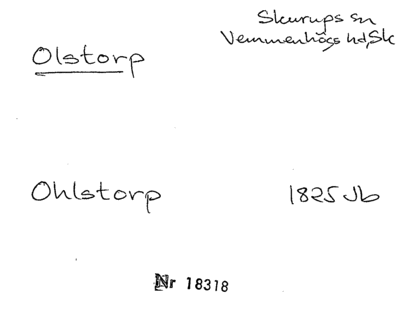 Skurups sn
Vemmenhögs hd, Sk
Olstorp
Ohlstorp 1825 Jb
Nr 18318